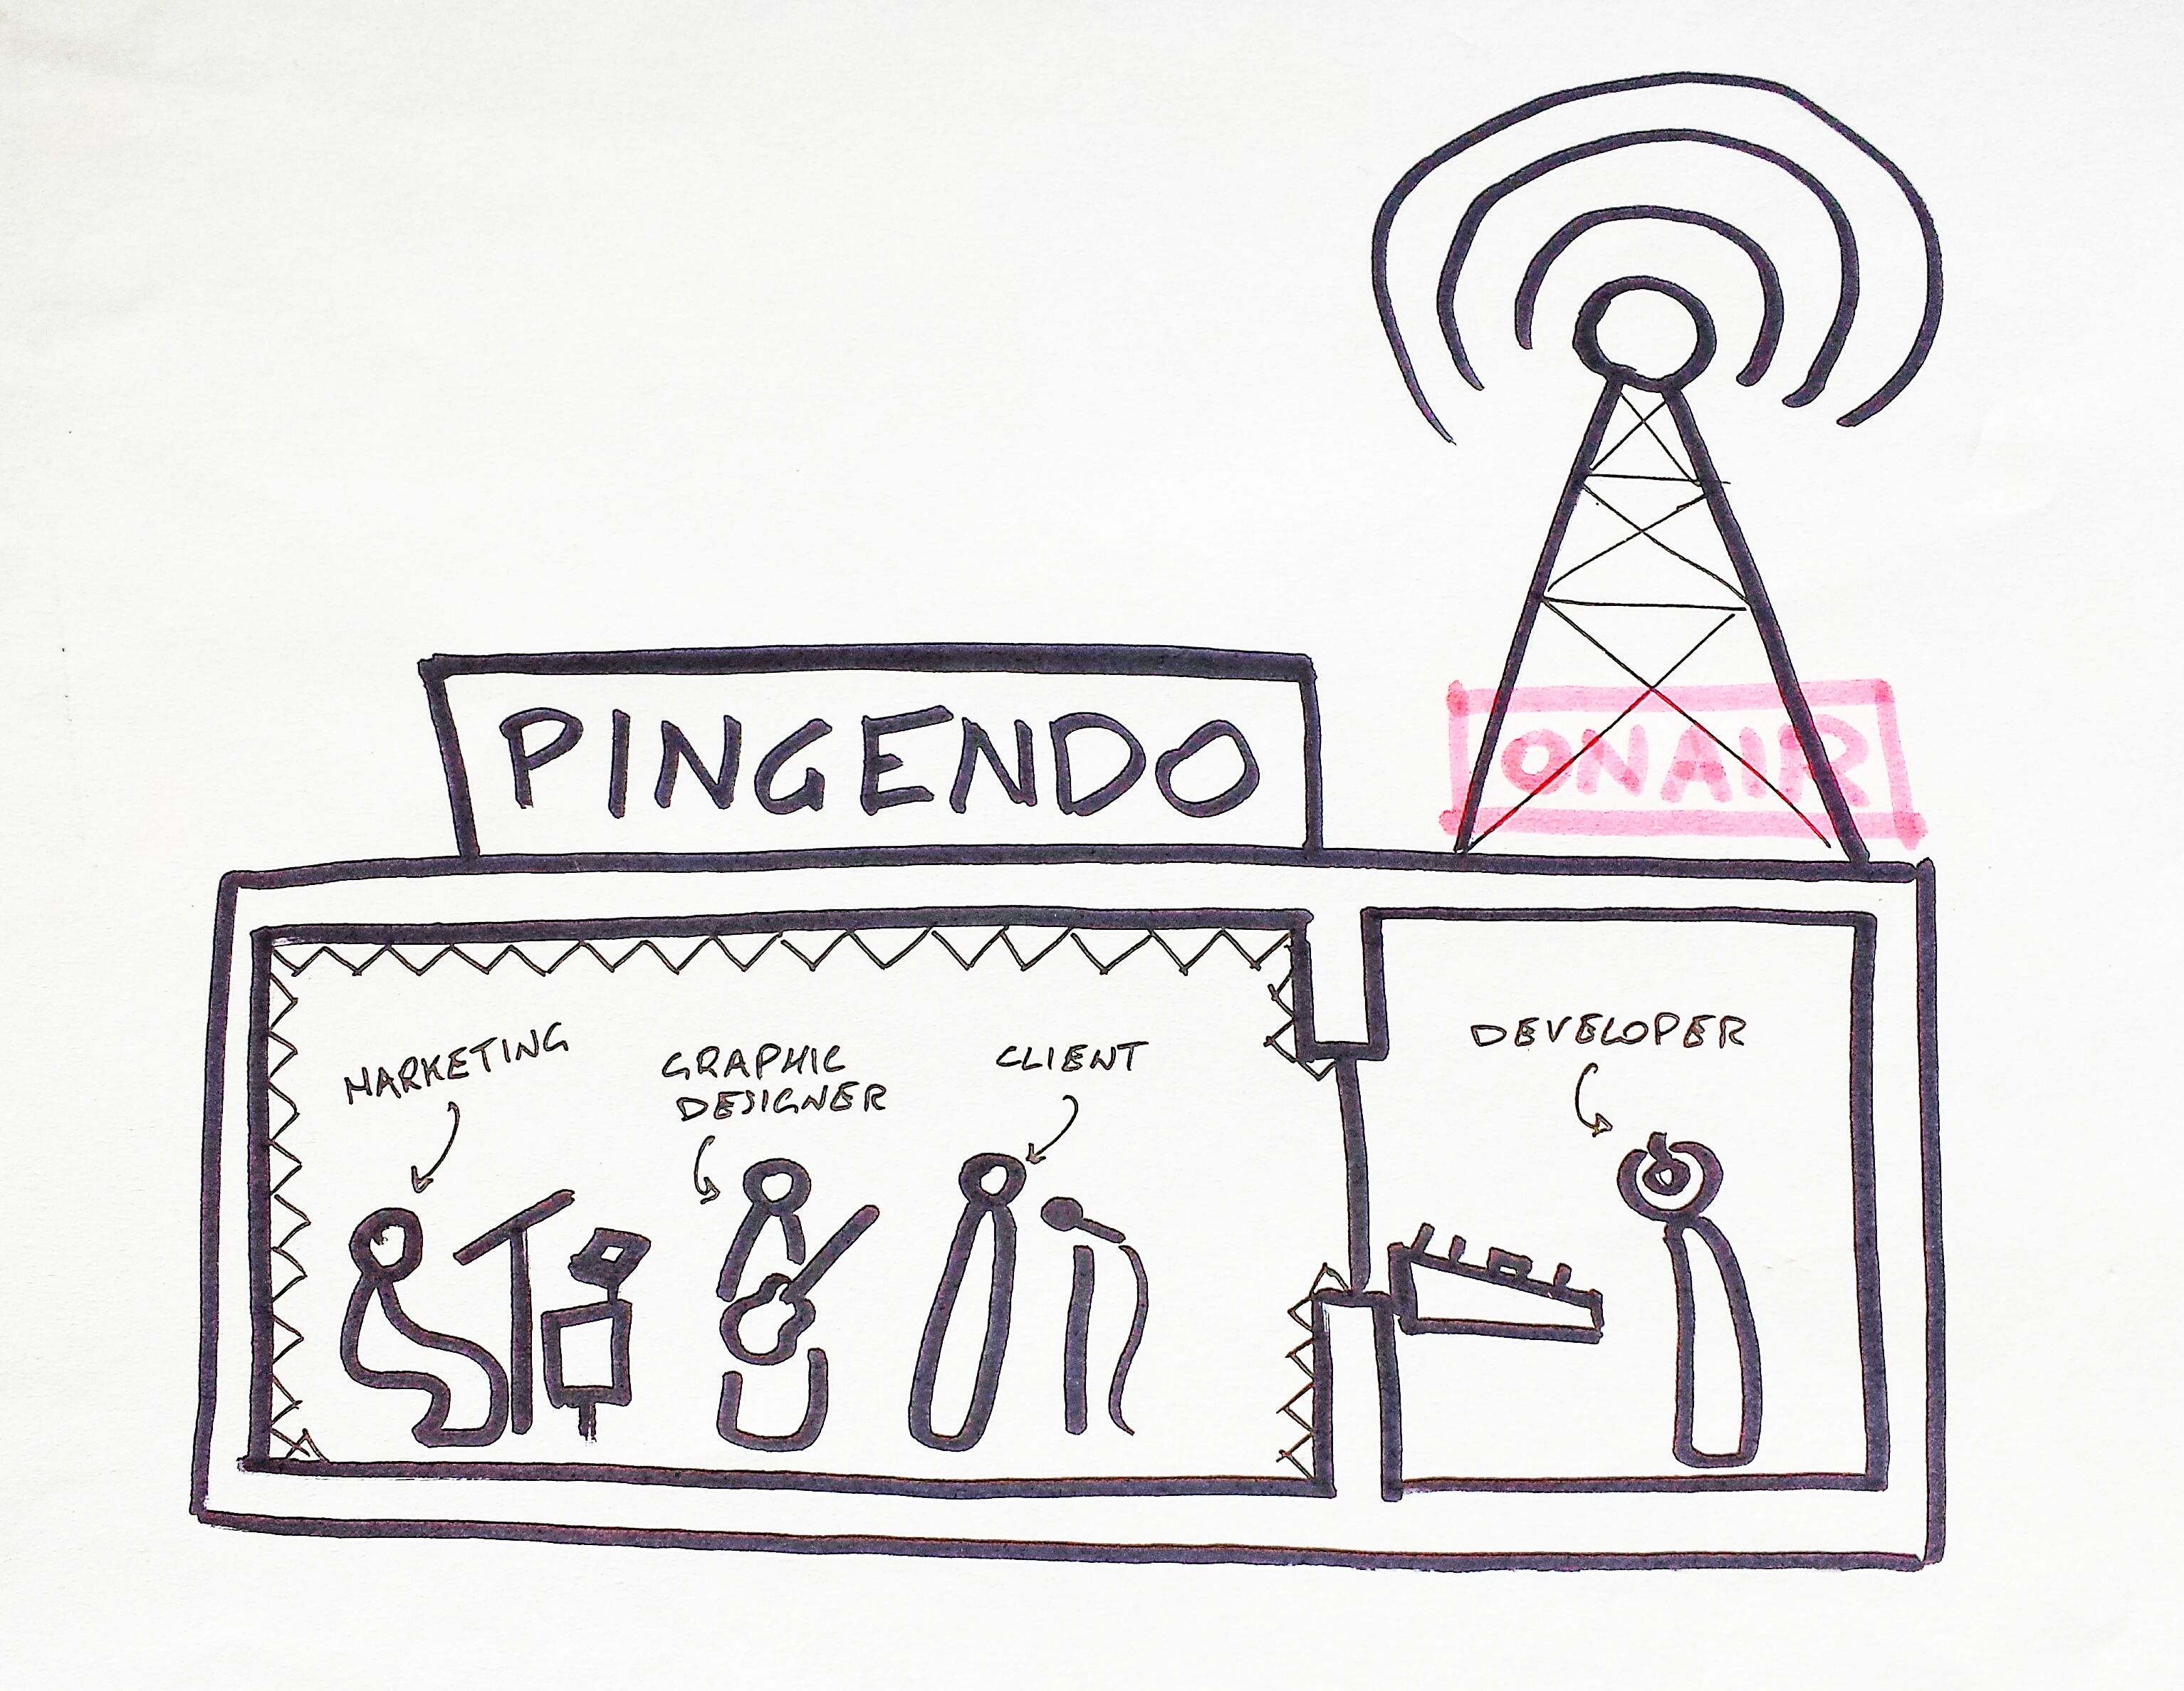 PINGENDO
ON AIR
MARKETING
GRAPHIC
DESIGNER
CLIENT
DEVELOPER